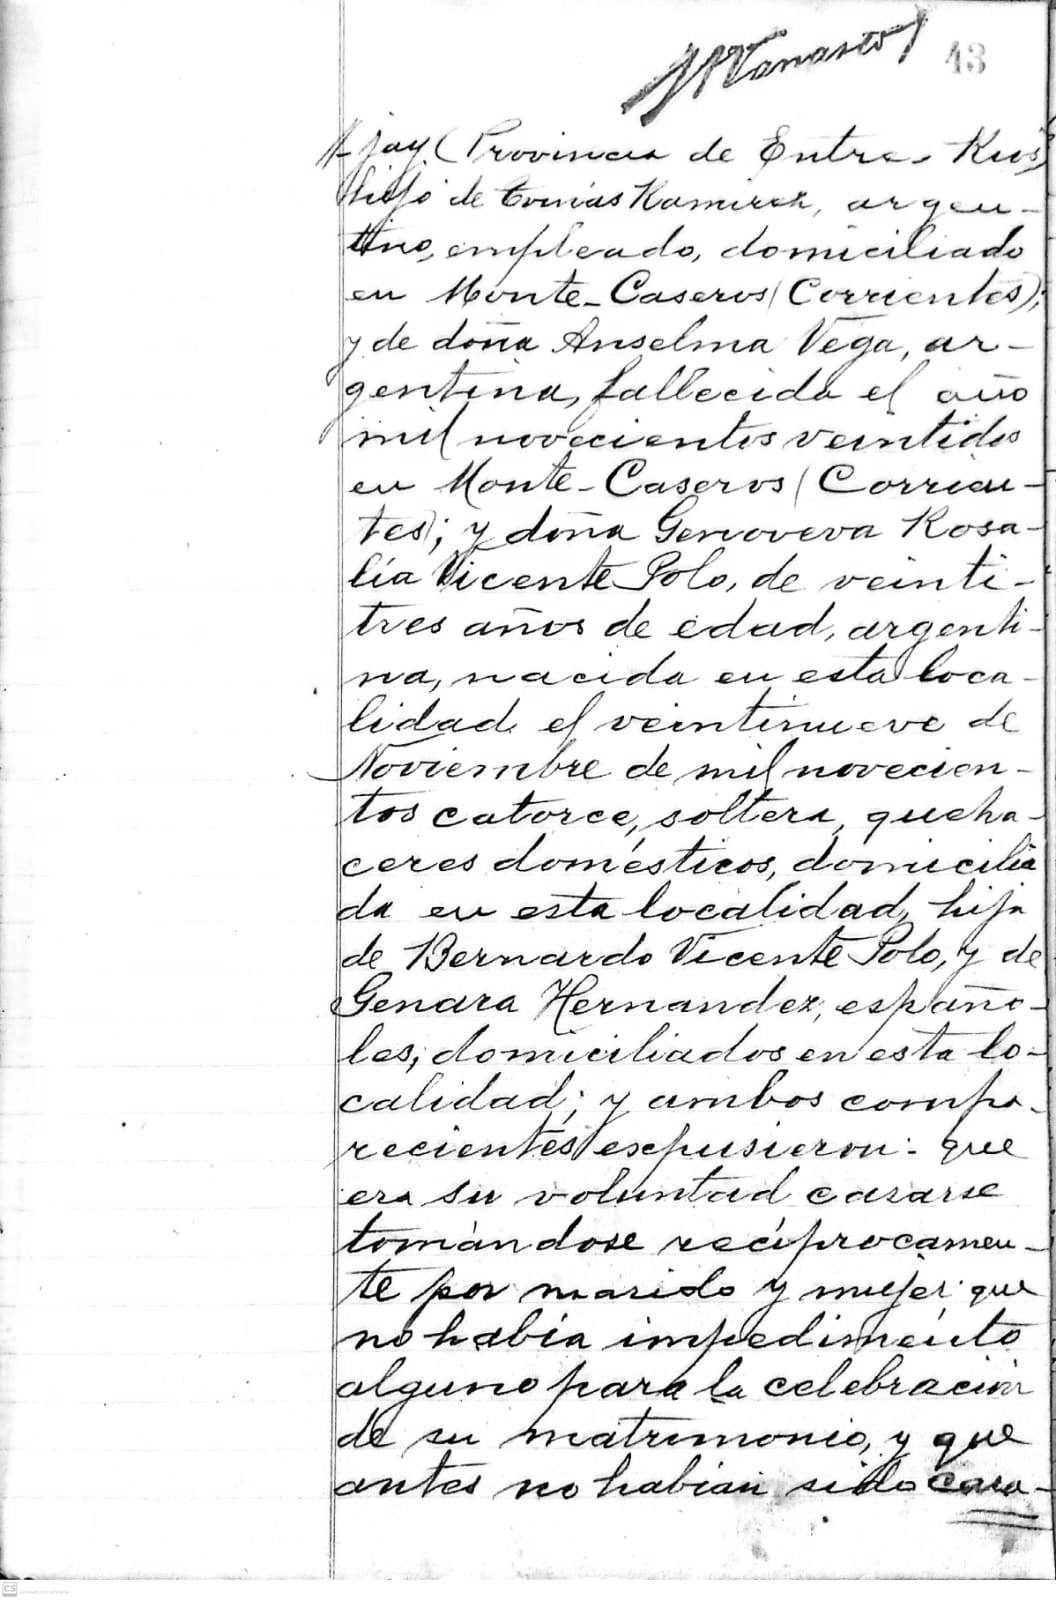 43
jay (Provincia de Entre-Rios)
hijo de Tomás Ramirez, argen-
tino, empleado, domiciliado
en Monte-Caseros (Corrientes);
y de doña Anselma Vega, ar-
gentina, fallecida el año
mil novecientos veintidos
en Monte-Caseros (Corrien-
tes); y doña Genoveva Rosa-
lía Vicente Polo, de veinti-
tres años de edad, argenti-
na, nacida en esta loca-
lidad el veintinueve de
Noviembre de mil novecien-
tos catorce, soltera, queha-
ceres domésticos, domicilia
da en esta localidad, hija
de Bernardo Vicente Polo, y de
Genara Hernandez, españo-
les, domiciliados en esta lo-
calidad; y ambos compa-
recientes expusieron: que
era su voluntad casarse
tomándose recíprocamen-
te por marido y mujer: que
no había impedimento
alguno para la celebración
de su matrimonio, y que
antes no habían sido casa-
CS